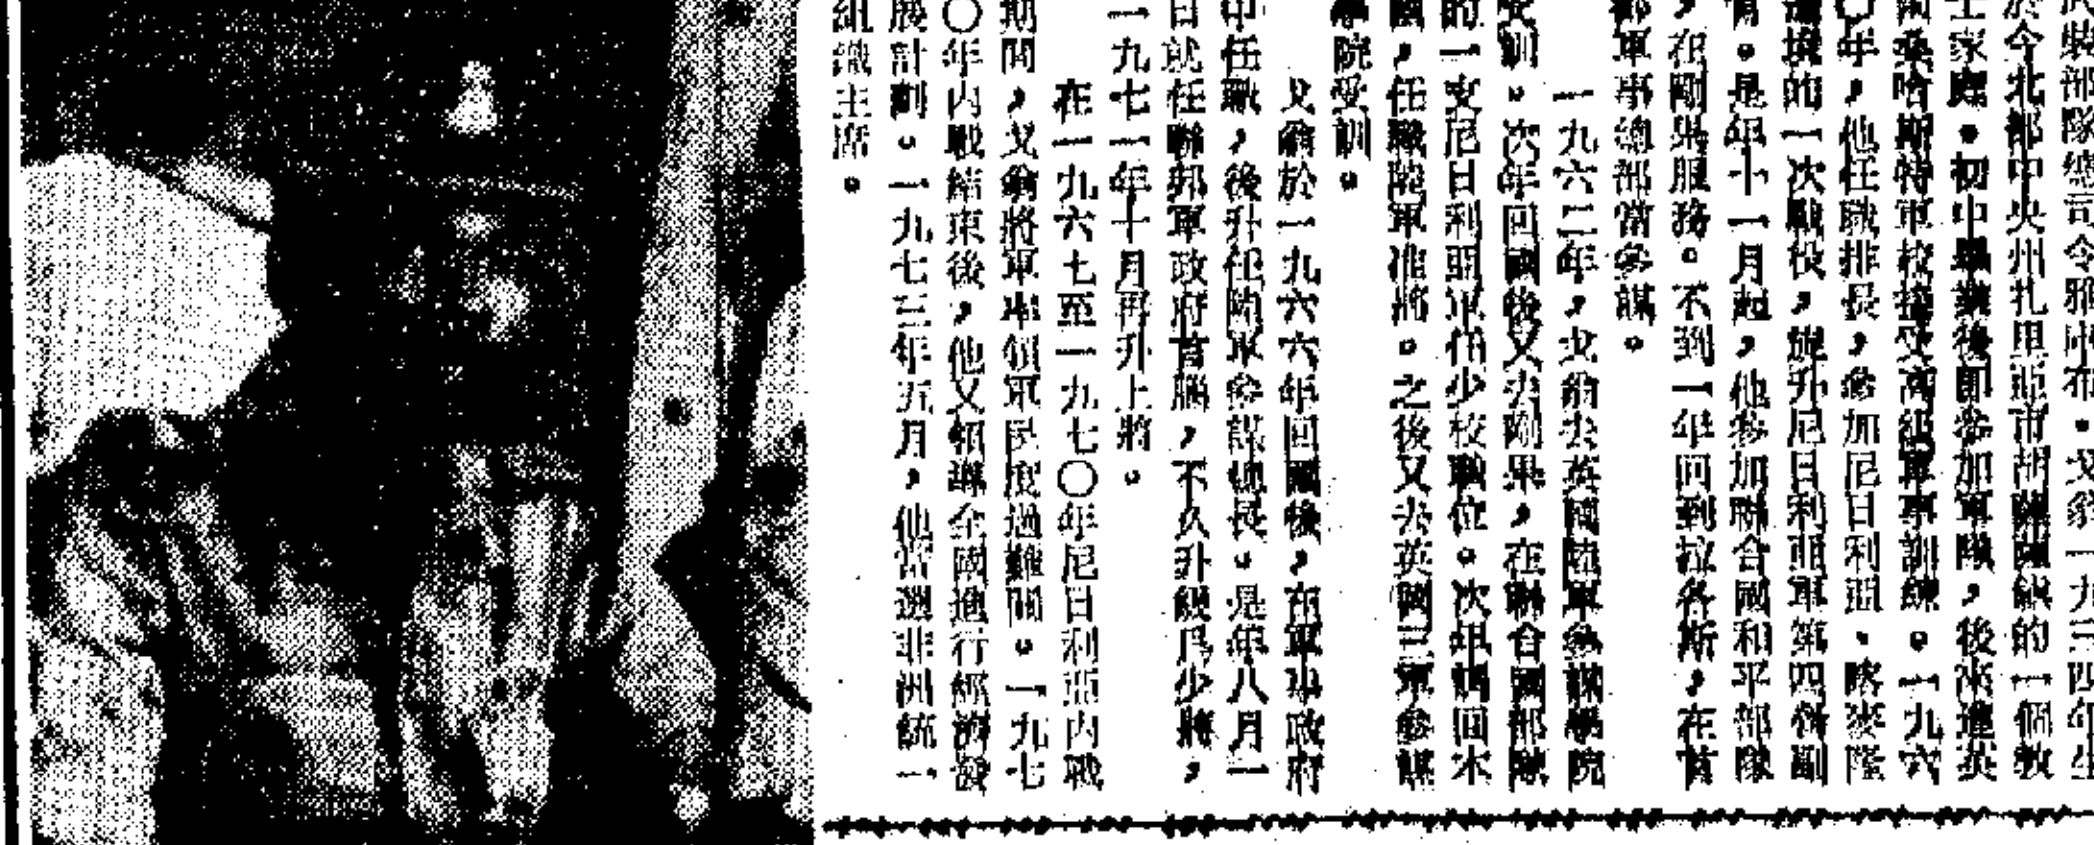 武裝部隊總司令雅布·戈翁一九三四年生
於今北部中央州扎里亞市胡薩鎮的一個教
士家庭。初中畢業後即參加軍隊,後來進英
國桑哈斯特軍校接受高級軍事訓練。一九六
〇年,他任職排長,參加尼日利亞、喀麥隆
邊境的一次戰役,旋升尼日利亞軍第四營副
官。是年十一月起,他參加聯合國和平部隊
,在剛果服務。不到一年回到拉各斯,在首
都軍事總部當參謀。
一九六二年,戈翁去英國陸軍參謀學院
受訓。次年回國後又去剛果,在聯合國部隊
的一支尼日利亞軍任少校職位。次年調回本
國,任職陸軍准將。之後又去英國三軍參謀
學院受訓。
戈翁於一九六六年回國後,在軍事政府
中任職,後升任陸軍參謀總長。是年八月一
日就任聯邦軍政府首腦,不久升級爲少將,
一九七一年十月再升上將。
在一九六七至一九七〇年尼日利亞內戰
期間,戈翁將軍率領軍民度過難關。一九七
〇年內戰結束後,他又領導全國進行經濟發
展計劃。一九七三年五月,他當選非洲統一
組織主席。